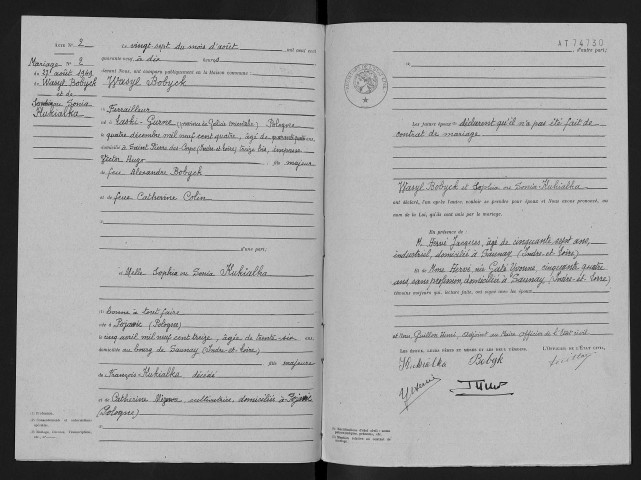 Acte N° 2
Mariage N° 2
du 27 août 1949
de Wasyl Bobyck
et de
Sonia
Kukialka
Le vingt sept du mois d'août mil neuf cent
quarante neuf à dix heures
devant Nous, ont comparu publiquement en la Maison commune :
Wasyl Bobyck
(1) Ferrailleur
né à Laski - (province de Galicie Orientale) Pologne
le quatre décembre mil neuf cent quatre, âgé de
domicilié à Saint Pierre des Corps (Indre et Loire) treize bis, impasse
Victor Hugo fils majeur
de feu Alexandre Bobyck
et de feue Catherine Colin
d'une part;
et Melle Sophia ou Sonia Kukialka
(1) bonne à tout faire
née à (Pologne)
le cinq avril mil neuf cent treize, âgée de trente six ans
domiciliée au bourg de Saunay (Indre-et-Loire)
fille majeure
de François Kukialka décédé
et de Catherine cultivatrice, domiciliée à
(Pologne)
(1) Profession.
AT 74730
d'autre part;
Les futurs époux déclarent qu'il n'a pas été fait de
contrat de mariage
Wasyl Bobyck et Sophia ou Sonia Kukialka
ont déclaré, l'un après l'autre, vouloir se prendre pour époux et Nous avons prononcé, au
nom de la Loi, qu'ils sont unis par le mariage.
En présence de
M. Hervé Jacques, âgé de cinquante sept ans,
industriel, domicilié à Saunay (Indre et Loire)
et de Mme Hervé, née Yvonne, cinquante quatre
ans, sans profession, domiciliée à Saunay (Indre-et-Loire)
témoins majeurs qui, lecture faite, ont signé avec les époux
et Nous, Guillon Henri, adjoint au Maire Officier de l'Etat civil
LES ÉPOUX, LEURS PÈRES ET MÈRES ET LES DEUX TÉMOINS, L'OFFICIER DE L'ÉTAT CIVIL,
Kukialka Bobyk